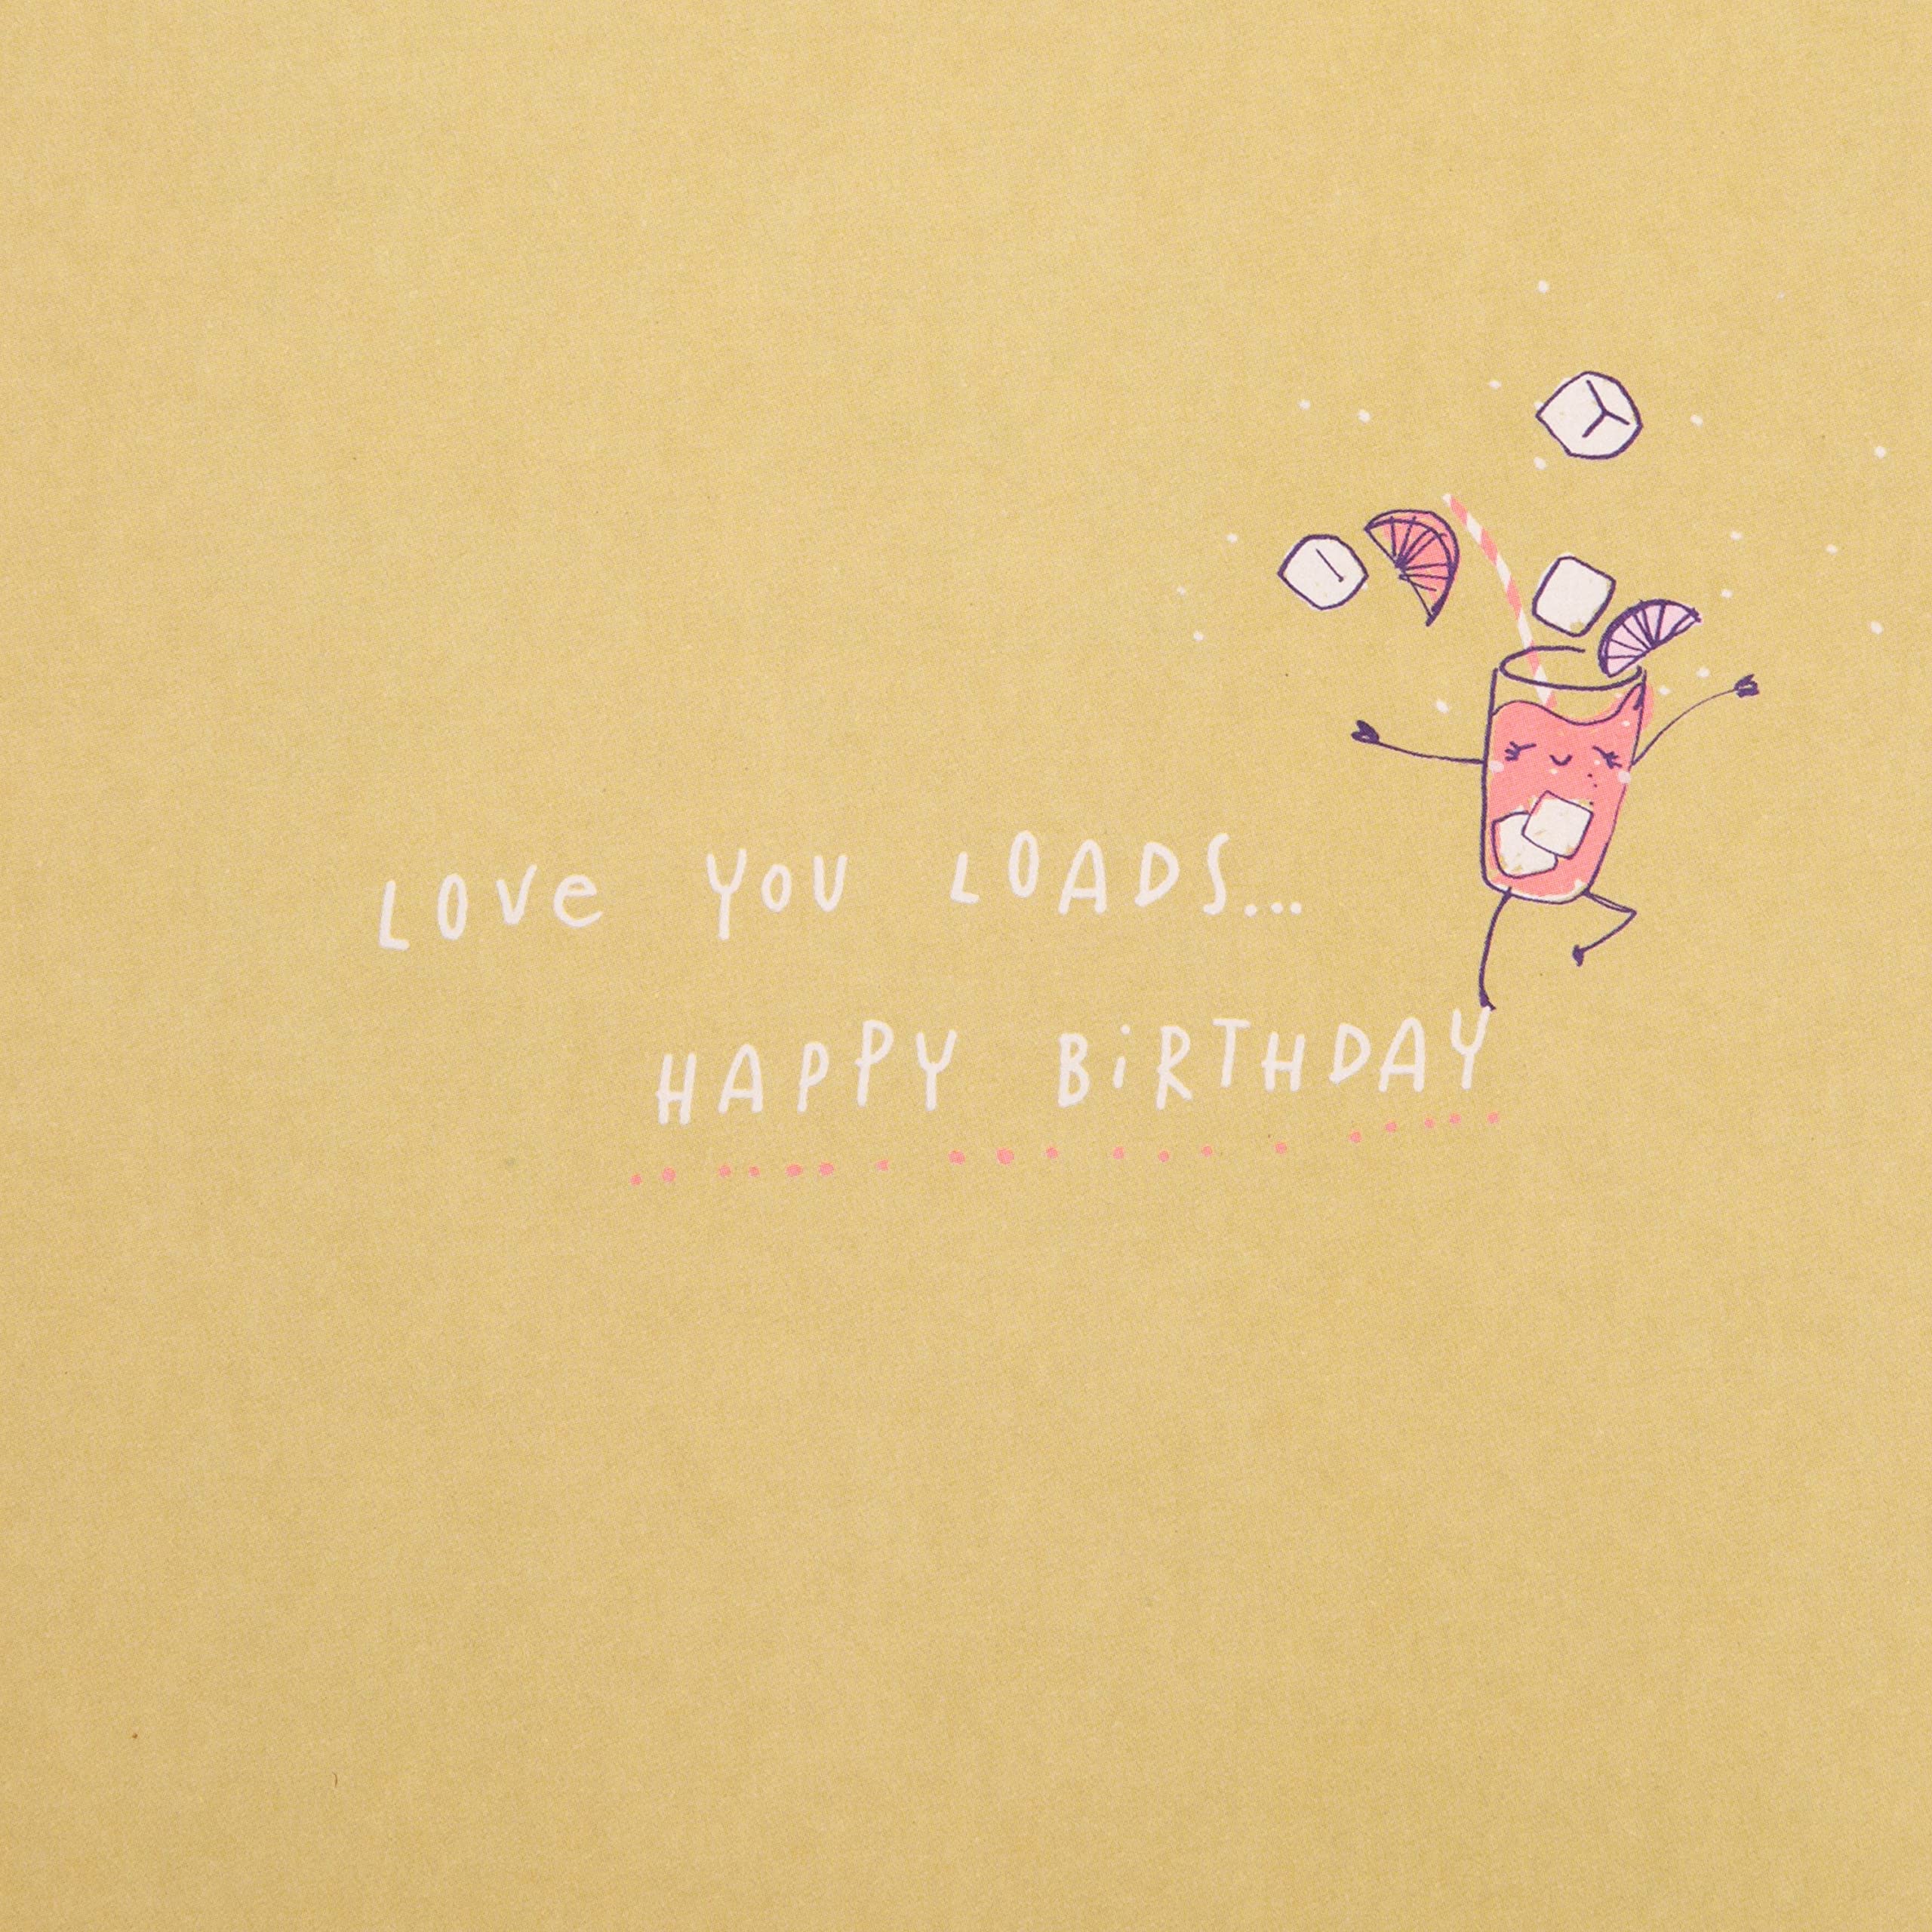 LOVe YOU LOADS...
HAPPY BiRTHDAY